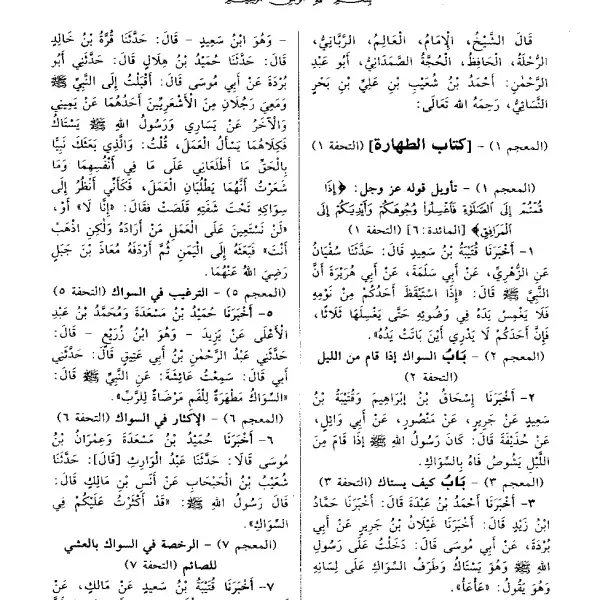 قَالَ الشَّيْخُ، الْإِمَامُ، الْعَالِمُ، الرَّبَّانِيُّ،
الرُّحْلَةُ، الْحَافِظُ، الْحُجَّةُ الصَّمَدَانِيُّ، أَبُو عَبْدِ
الرَّحْمٰنِ: أَحْمَدُ بْنُ شُعَيْبِ بْنِ عَلِيِّ بْنِ بَحْرٍ
النَّسَائِيُّ، رَحِمَهُ الله تَعَالَى:
(المعجم ١) - [كتاب الطهارة] (التحفة ١)
(المعجم ١) - تأويل قوله عز وجل: ﴿إِذَا
قُمْتُمْ إِلَى الصَّلَوٰةِ فَاغْسِلُوا وُجُوهَكُمْ وَأَيْدِيَكُمْ إِلَى
الْمَرَافِقِ﴾ [المائدة:٦] (التحفة ١)
١- أَخْبَرَنَا قُتَيْبَةُ بْنُ سَعِيدٍ قَالَ: حَدَّثَنَا سُفْيَانُ
عَنِ الزُّهْرِيِّ، عَنْ أَبِي سَلَمَةَ، عَنْ أَبِي هُرَيْرَةَ أَنَّ
النَّبِيَّ ﷺ قَالَ: «إِذَا اسْتَيْقَظَ أَحَدُكُمْ مِنْ نَوْمِهِ
فَلَا يَغْمِسْ يَدَهُ فِي وَضُوئِهِ حَتَّى يَغْسِلَهَا ثَلَاثًا،
فَإِنَّ أَحَدَكُمْ لَا يَدْرِي أَيْنَ بَاتَتْ يَدُهُ».
(المعجم ٢) - بَابُ السواك إذا قام من الليل
(التحفة ٢)
٢- أَخْبَرَنَا إِسْحَاقُ بْنُ إِبْرَاهِيمَ وَقُتَيْبَةُ بْنُ
سَعِيدٍ عَنْ جَرِيرٍ، عَنْ مَنْصُورٍ، عَنْ أَبِي وَائِلٍ،
عَنْ حُذَيْفَةَ قَالَ: كَانَ رَسُولُ اللهِ ﷺ إِذَا قَامَ مِنَ
اللَّيْلِ يَشُوصُ فَاهُ بِالسِّوَاكِ.
(المعجم ٣) - بَابُ كيف يستاك (التحفة ٣)
٣- أَخْبَرَنَا أَحْمَدُ بْنُ عَبْدَةَ قَالَ: أَخْبَرَنَا حَمَّادُ
ابْنُ زَيْدٍ قَالَ: أَخْبَرَنَا غَيْلَانُ بْنُ جَرِيرٍ عَنْ أَبِي
بُرْدَةَ، عَنْ أَبِي مُوسَى قَالَ: دَخَلْتُ عَلَى رَسُولِ
اللهِ ﷺ وَهُوَ يَسْتَاكُ وَطَرَفُ السِّوَاكِ عَلَى لِسَانِهِ
وَهُوَ يَقُولُ: «عَأْعَأْ».
- وَهُوَ ابْنُ سَعِيدٍ - قَالَ: حَدَّثَنَا قُرَّةُ بْنُ خَالِدٍ
قَالَ: حَدَّثَنَا حُمَيْدُ بْنُ هِلَالٍ قَالَ: حَدَّثَنِي أَبُو
بُرْدَةَ عَنْ أَبِي مُوسَى قَالَ: أَقْبَلْتُ إِلَى النَّبِيِّ ﷺ
وَمَعِيَ رَجُلَانِ مِنَ الْأَشْعَرِيِّينَ أَحَدُهُمَا عَنْ يَمِينِي
وَالْآخَرُ عَنْ يَسَارِي وَرَسُولُ اللهِ ﷺ يَسْتَاكُ
فَكِلَاهُمَا يَسْأَلُ الْعَمَلَ، قُلْتُ: وَالَّذِي بَعَثَكَ نَبِيًّا
بِالْحَقِّ مَا أَطْلَعَانِي عَلَى مَا فِي أَنْفُسِهِمَا وَمَا
شَعَرْتُ أَنَّهُمَا يَطْلُبَانِ الْعَمَلَ، فَكَأَنِّي أَنْظُرُ إِلَى
سِوَاكِهِ تَحْتَ شَفَتِهِ قَلَصَتْ فَقَالَ: «إِنَّا لَا» أَوْ،
«لَنْ نَسْتَعِينَ عَلَى الْعَمَلِ مَنْ أَرَادَهُ وَلٰكِنِ اذْهَبْ
أَنْتَ» فَبَعَثَهُ إِلَى الْيَمَنِ ثُمَّ أَرْدَفَهُ مُعَاذَ بْنَ جَبَلٍ
رَضِيَ اللهُ عَنْهُمَا.
(المعجم ٥) - الترغيب في السواك (التحفة ٥)
٥- أَخْبَرَنَا حُمَيْدُ بْنُ مَسْعَدَةَ وَمُحَمَّدُ بْنُ عَبْدِ
الْأَعْلَى عَنْ يَزِيدَ - وَهُوَ ابْنُ زُرَيْعٍ - قَالَ:
حَدَّثَنِي عَبْدُ الرَّحْمٰنِ بْنُ أَبِي عَتِيقٍ قَالَ: حَدَّثَنِي
أَبِي قَالَ: سَمِعْتُ عَائِشَةَ: عَنِ النَّبِيِّ ﷺ قَالَ:
«السِّوَاكُ مَطْهَرَةٌ لِلْفَمِ مَرْضَاةٌ لِلرَّبِّ».
(المعجم ٦) - الإكثار في السواك (التحفة ٦)
٦- أَخْبَرَنَا حُمَيْدُ بْنُ مَسْعَدَةَ وَعِمْرَانُ بْنُ
مُوسَى قَالَا: حَدَّثَنَا عَبْدُ الْوَارِثِ [قَالَ]: حَدَّثَنَا
شُعَيْبُ بْنُ الْحَبْحَابِ عَنْ أَنَسِ بْنِ مَالِكٍ قَالَ:
قَالَ رَسُولُ اللهِ ﷺ: «قَدْ أَكْثَرْتُ عَلَيْكُمْ فِي
السِّوَاكِ».
(المعجم ٧) - الرخصة في السواك بالعشي
للصائم (التحفة ٧)
٧- أَخْبَرَنَا قُتَيْبَةُ بْنُ سَعِيدٍ عَنْ مَالِكٍ، عَنْ